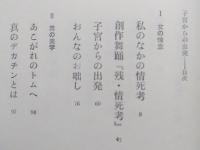 子宮からの出発――目次
I 女の情念
私のなかの情死考 8
創作舞踊『残・情死考』 41
子宮からの出発 60
おんなのお咄し 76
II 性の美学
あこがれのトムへ 94
真のデカチンとは 98